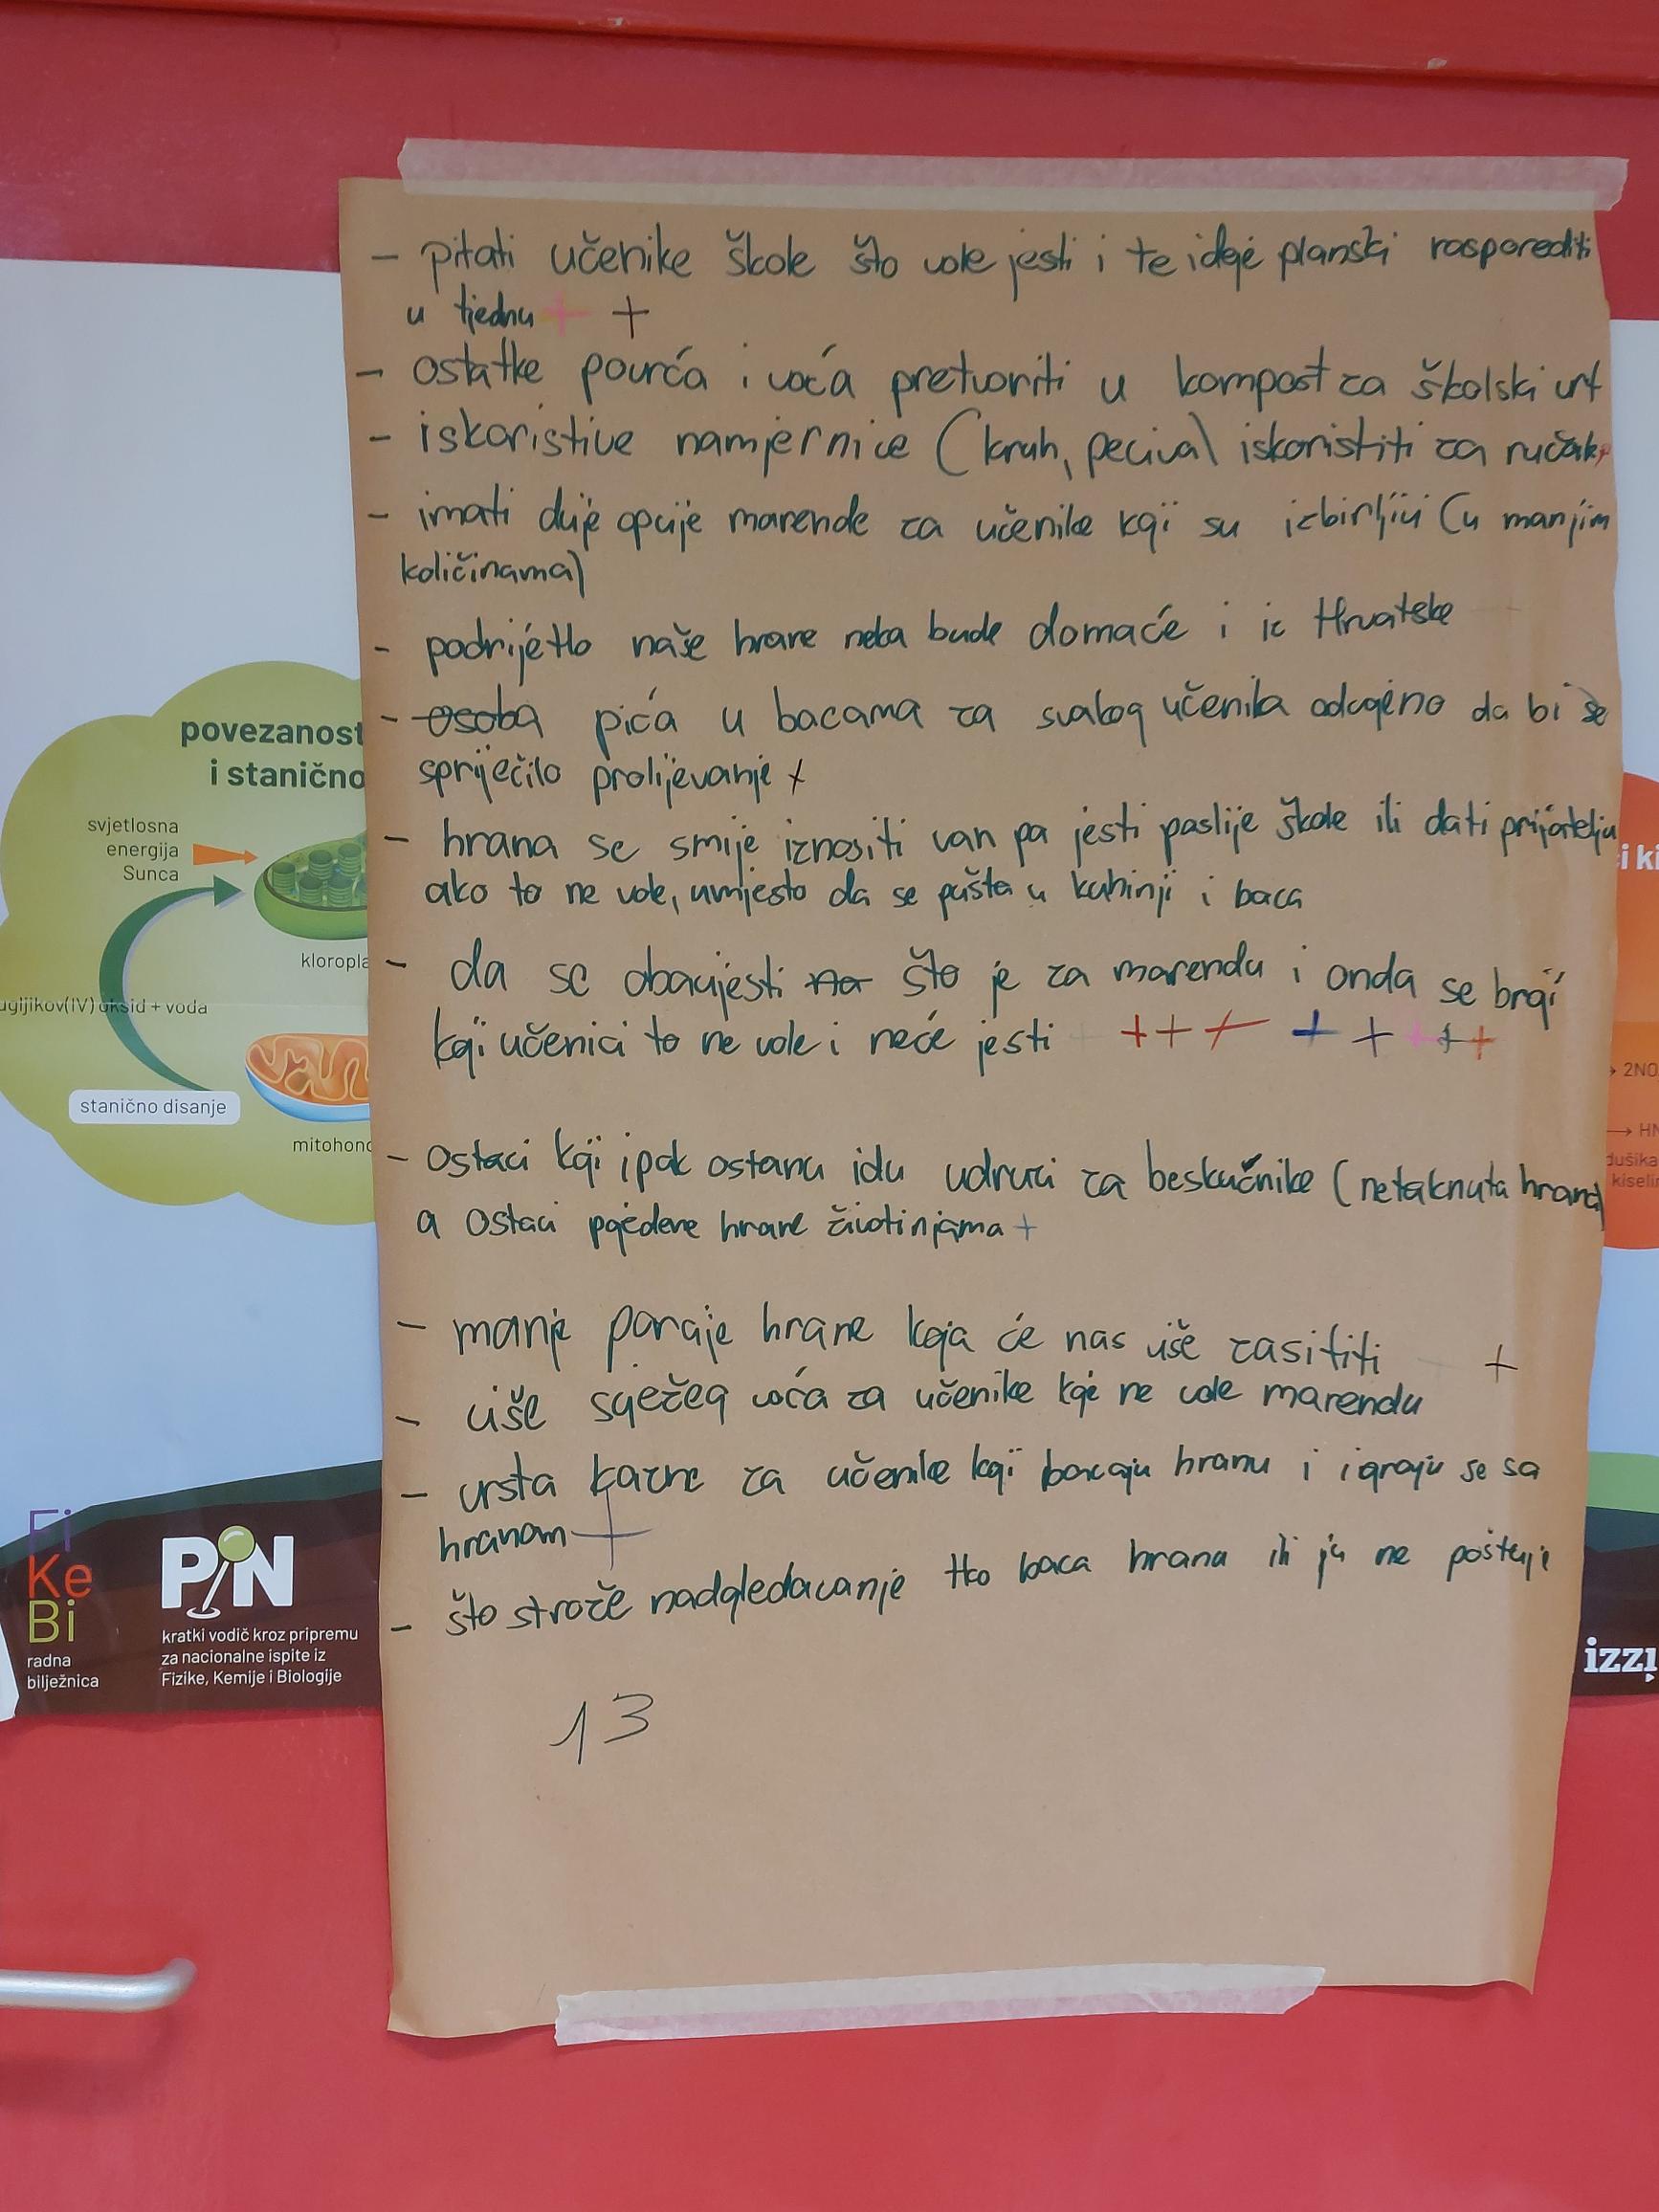 - pitati učenike škole što vole jesti i te ideje planski rasporediti
u tjednu + +
- ostatke povrća i voća pretvoriti u kompost za školski vrt
- iskoristive namjernice (kruh, peciva) iskoristiti za ručak +
- imati dvije opcije marende za učenike koji su izbirljivi (u manjim
količinama)
- podrijetlo naše hrane neka bude domaće i iz Hrvatske
- osoba pića u bocama za svakog učenika odvojeno da bi se
spriječilo prolijevanje +
- hrana se smije iznositi van pa jesti poslije škole ili dati prijatelju
ako to ne vole, umjesto da se pušta u kuhinji i baca
- da se obavijesti na što je za marendu i onda se broji
koji učenici to ne vole i neće jesti + + + + + + + +
- Ostaci koji ipak ostanu idu udruzi za beskućnike (netaknuta hrana)
a ostaci pojedene hrane životinjama +
- manje porcije hrane koja će nas više zasititi +
- više svježeg voća za učenike koje ne vole marendu
- vrsta kazne za učenike koji bacaju hranu i igraju se sa
hranom +
- što strože nadgledavanje tko baca hranu ili ju ne poštuje
13
povezanost
i stanično
svjetlosna
energija
Sunca
kloropla
ugljikov(IV) oksid + voda
stanično disanje
mitohond
Fi
Ke
Bi
radna
bilježnica
PiN
kratki vodič kroz pripremu
za nacionalne ispite iz
Fizike, Kemije i Biologije
i ki
→ 2NO
→ HN
dušika
kiselin
izzi